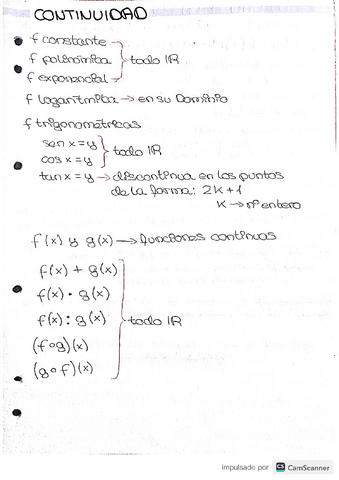 CONTINUIDAD
f constante
f polinómica } todo IR
f exponencial
f logarítmica → en su Dominio
f trigonométricas
sen x = y
cos x = y } todo IR
tan x = y → discontinua en los puntos
de la forma: 2K + 1
K → nº entero
f(x) y g(x) → funciones continuas
f(x) + g(x)
f(x) · g(x)
f(x) : g(x) } todo IR
(f∘g)(x)
(g∘f)(x)
impulsado por CS CamScanner